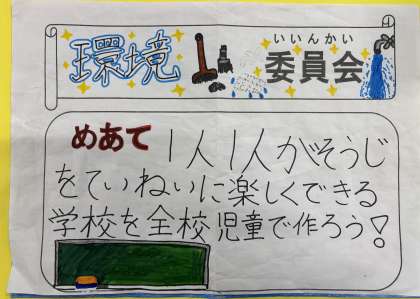 環境
いいんかい
委員会
めあて 1人1人がそうじ
をていねいに楽しくできる
学校を全校児童で作ろう!